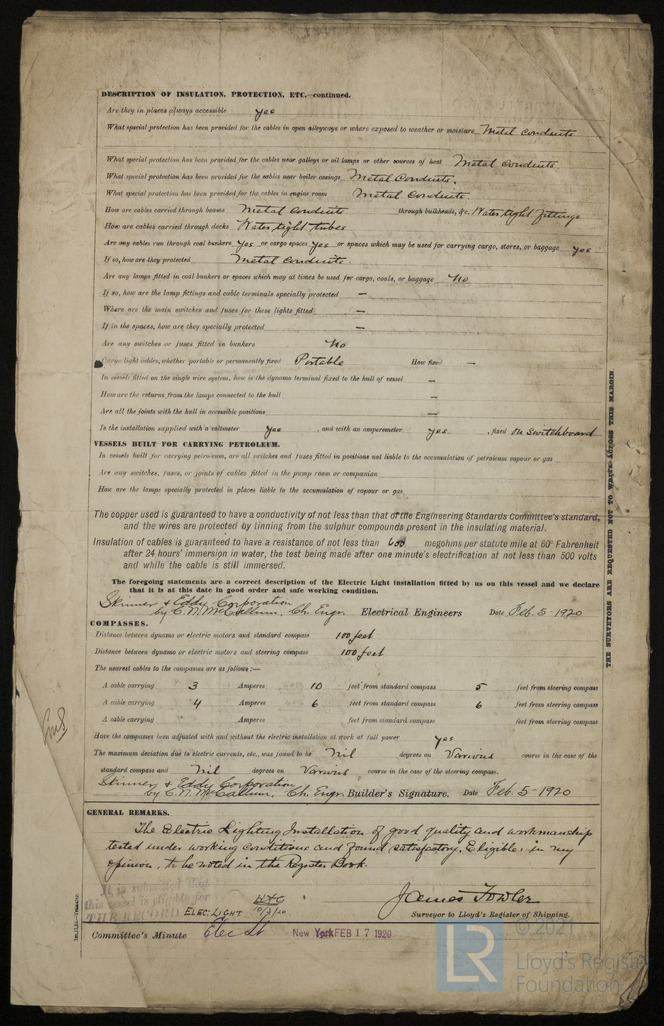 DESCRIPTION OF INSULATION, PROTECTION, ETC.—continued.
Are they in places always accessible yes
What special protection has been provided for the cables in open alleyways or where exposed to weather or moisture Metal conduits
What special protection has been provided for the cables near galleys or oil lamps or other sources of heat Metal Conduits
What special protection has been provided for the cables near boiler casings Metal Conduits.
What special protection has been provided for the cables in engine room Metal Conduits.
How are cables carried through beams Metal Conduits through bulkheads, &c. Water tight fittings
How are cables carried through decks Water tight tubes
Are any cables run through coal bunkers yes or cargo spaces yes or spaces which may be used for carrying cargo, stores, or baggage yes
If so, how are they protected Metal Conduits.
Are any lamps fitted in coal bunkers or spaces which may at times be used for cargo, coals, or baggage No
If so, how are the lamp fittings and cable terminals specially protected —
Where are the main switches and fuses for these lights fitted —
If in the spaces, how are they specially protected —
Are any switches or fuses fitted in bunkers No
Cargo light cables, whether portable or permanently fixed Portable How fixed —
In vessels fitted on the single wire system, how is the dynamo terminal fixed to the hull of vessel —
How are the returns from the lamps connected to the hull —
Are all the joints with the hull in accessible positions —
Is the installation supplied with a voltmeter yes , and with an amperemeter yes , fixed on Switchboard
VESSELS BUILT FOR CARRYING PETROLEUM.
In vessels built for carrying petroleum, are all switches and fuses fitted in positions not liable to the accumulation of petroleum vapour or gas
Are any switches, fuses, or joints of cables fitted in the pump room or companion
How are the lamps specially protected in places liable to the accumulation of vapour or gas
The copper used is guaranteed to have a conductivity of not less than that of the Engineering Standards Committee's standard,
and the wires are protected by tinning from the sulphur compounds present in the insulating material.
Insulation of cables is guaranteed to have a resistance of not less than 600 megohms per statute mile at 60° Fahrenheit
after 24 hours' immersion in water, the test being made after one minute's electrification at not less than 500 volts
and while the cable is still immersed.
The foregoing statements are a correct description of the Electric Light installation fitted by us on this vessel and we declare
that it is at this date in good order and safe working condition.
Skinner & Eddy Corporation
by C. N. McCallum, Ch. Engr. Electrical Engineers Date Feb. 5-1920
COMPASSES.
Distance between dynamo or electric motors and standard compass 100 feet
Distance between dynamo or electric motors and steering compass 100 feet
The nearest cables to the compasses are as follows:—
A cable carrying 3 Amperes 10 feet from standard compass 5 feet from steering compass
A cable carrying 4 Amperes 6 feet from standard compass 6 feet from steering compass
A cable carrying Amperes feet from standard compass feet from steering compass
Have the compasses been adjusted with and without the electric installation at work at full power yes
The maximum deviation due to electric currents, etc., was found to be Nil degrees on Various course in the case of the
standard compass and Nil degrees on Various course in the case of the steering compass.
Skinner & Eddy Corporation
by C. N. McCallum, Ch. Engr. Builder's Signature. Date Feb. 5-1920
GENERAL REMARKS.
The Electric Lighting Installation of good quality and workmanship
tested under working conditions and found satisfactory. Eligible, in my
opinion, to be noted in the Register Book.
It is submitted that
this vessel is eligible for
THE RECORD
ELEC. LIGHT
James Fowler
Surveyor to Lloyd's Register of Shipping.
Committee's Minute Elec Lt New York FEB 17 1920
THE SURVEYORS ARE REQUESTED NOT TO WRITE ACROSS THIS MARGIN
© 2021
LR
Lloyd's Register
Foundation